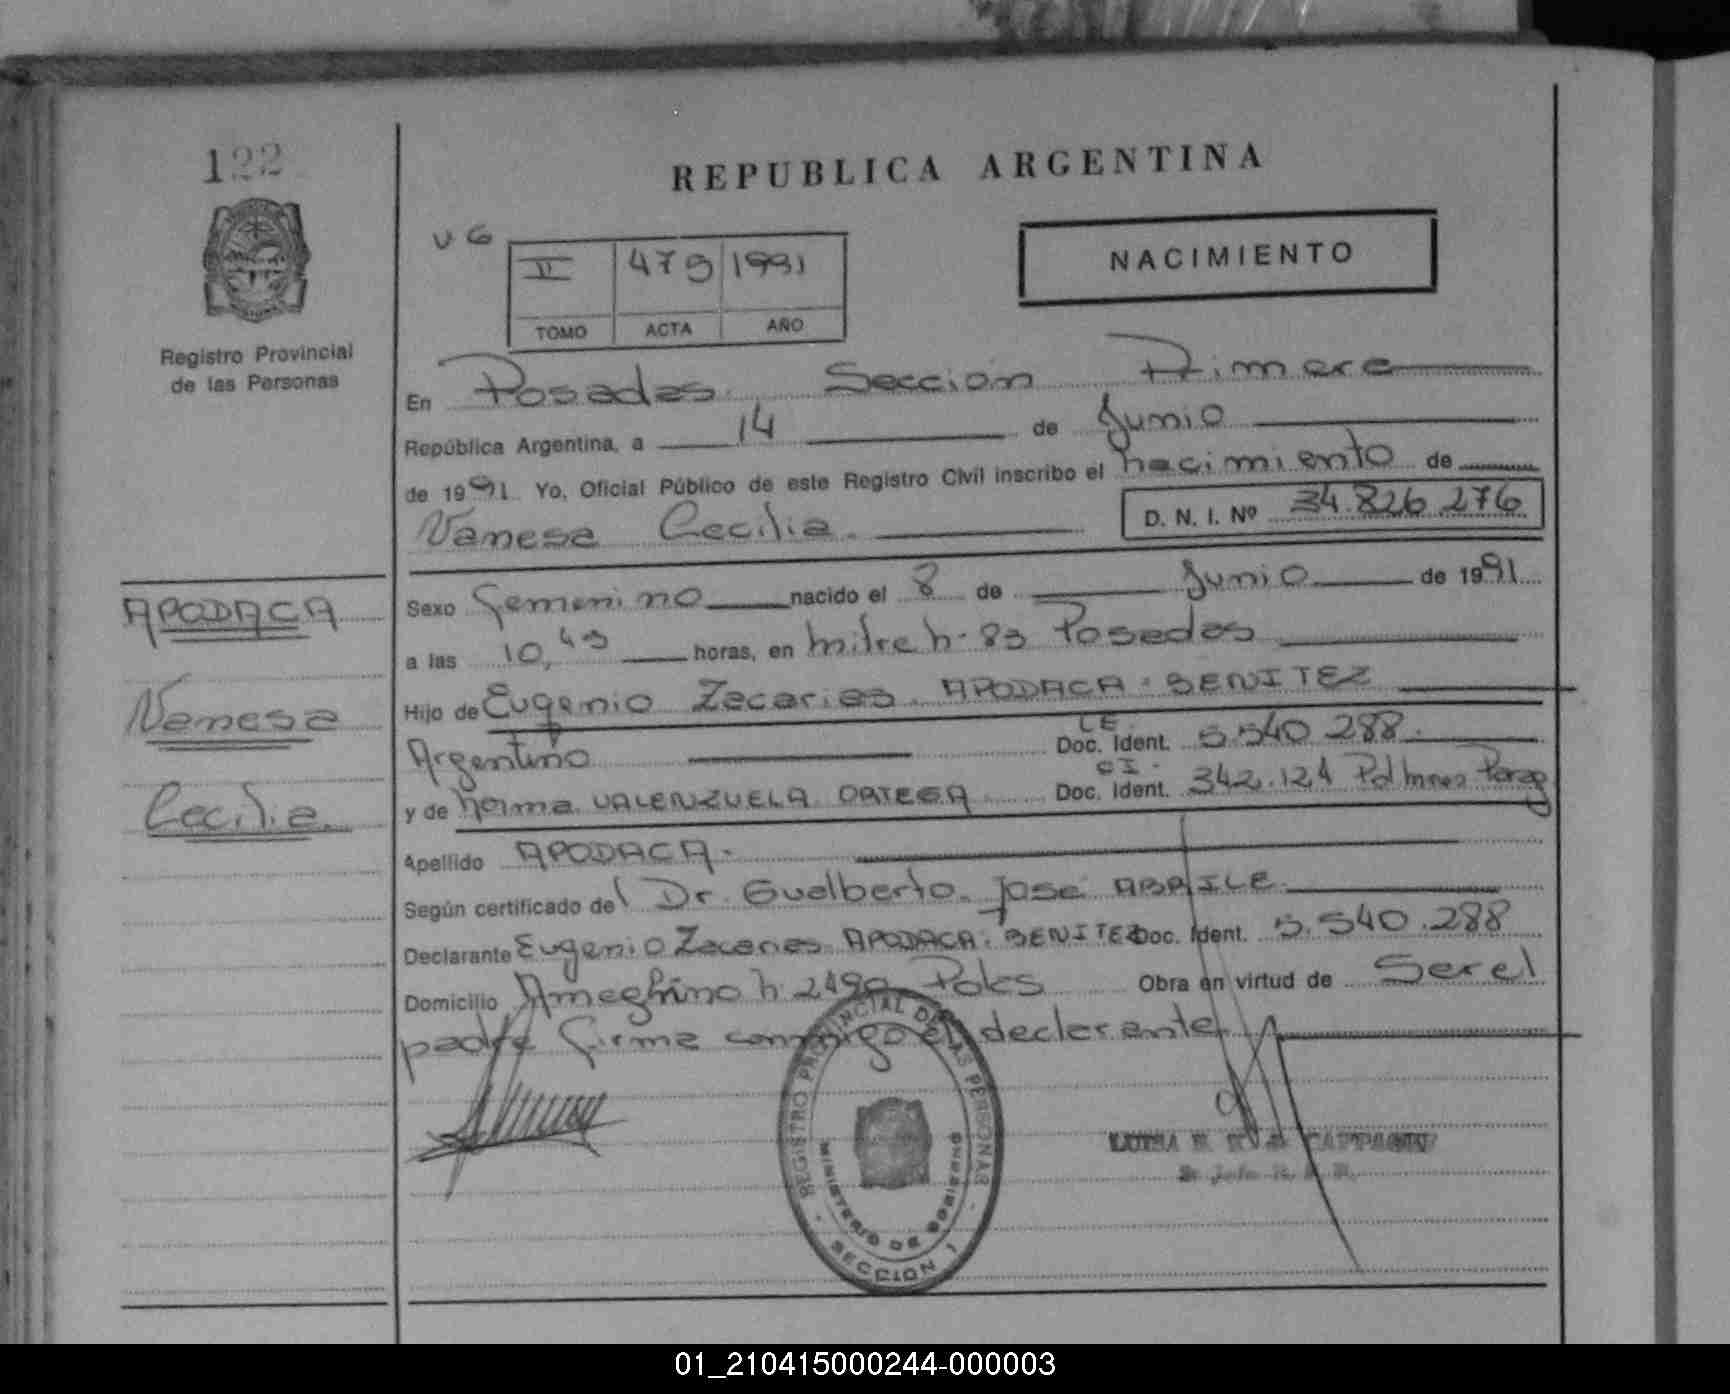 122
REPUBLICA ARGENTINA
NACIMIENTO
II 479 1991
TOMO ACTA AÑO
Registro Provincial
de las Personas
En Posadas. Seccion Primera
República Argentina, a 14 de Junio
de 1991. Yo, Oficial Público de este Registro Civil inscribo el nacimiento de
Vanesa Cecilia. D. N. I. Nº 34.826.276
APODACA
Vanesa
Cecilia.
Sexo femenino nacido el 8 de Junio de 1991
a las 10,45 horas, en Mitre Nº 83 Posadas
Hijo de Eugenio Zacarias. APODACA - BENITEZ
Argentino L E. Doc. Ident. 5.540.288.
C I.
y de Norma VALENZUELA ORTEGA Doc. Ident. 342.124 Pol Mnes
Apellido APODACA.
Según certificado del Dr. Gualberto José ABRILE
Declarante Eugenio Zacarias APODACA. BENITEZ Doc. Ident. 5.540.288
Domicilio Ameghino Nº Pdas Obra en virtud de Ser el
padre firma conmigo el declarante
REGISTRO PROVINCIAL DE LAS PERSONAS
MINISTERIO DE GOBIERNO
SECCION 1
01_210415000244-000003